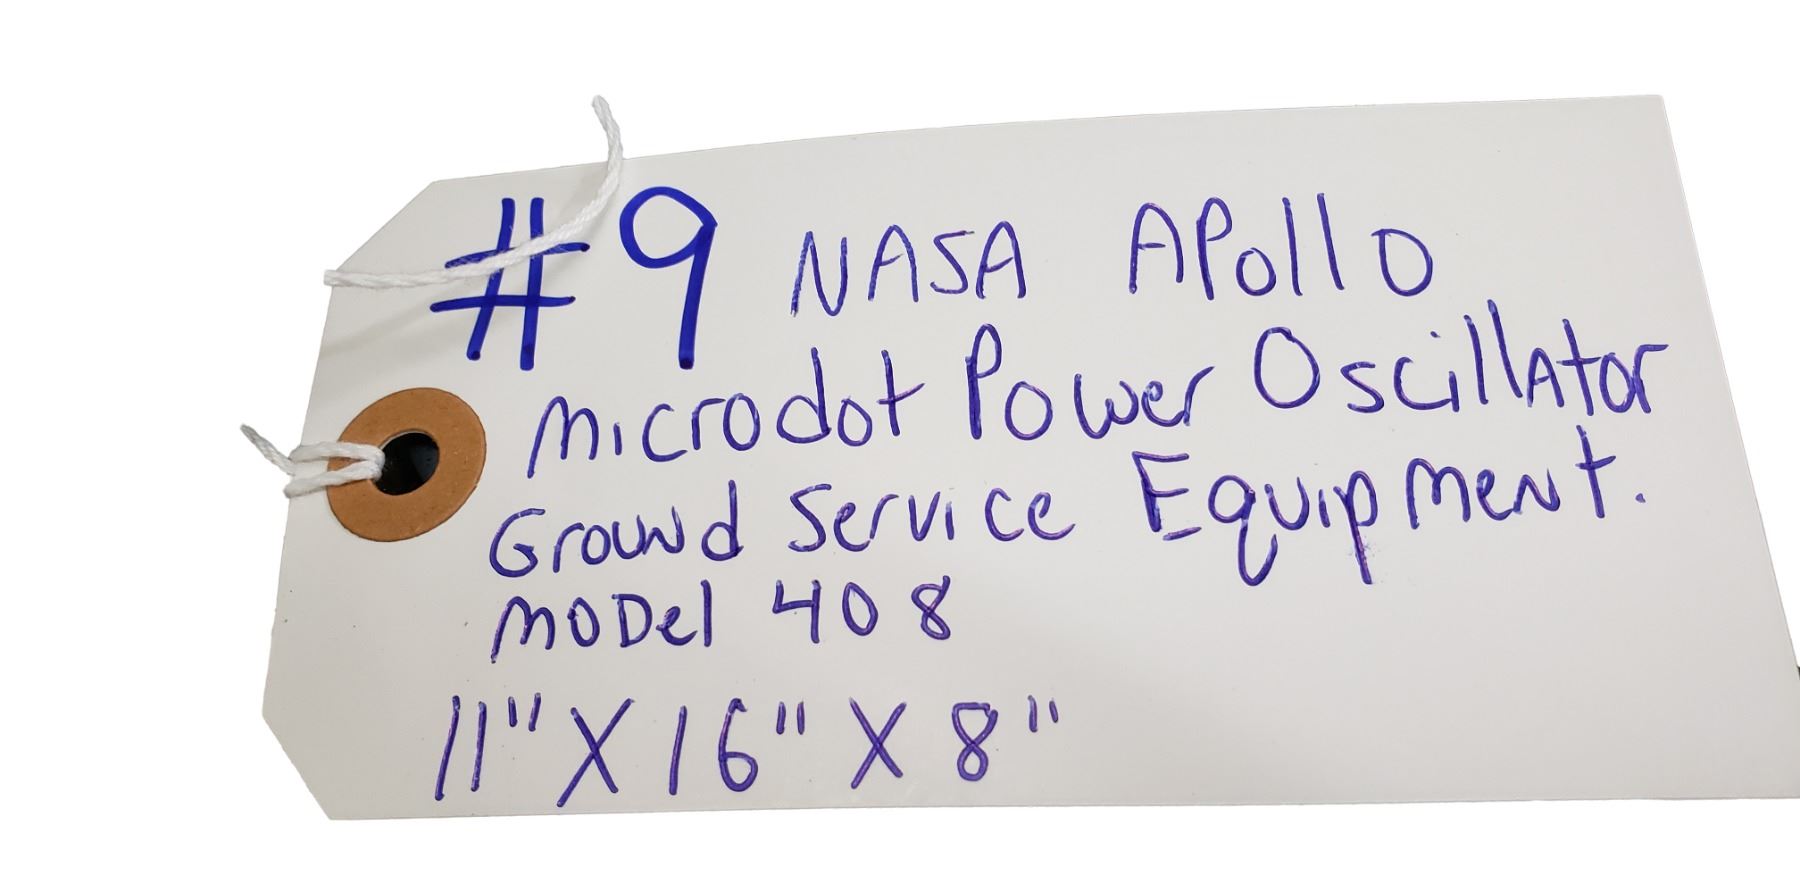 #9 NASA APollo
Microdot Power OscillAtor
Ground Service EquipMent.
MODel 408
11" X 16" X 8"